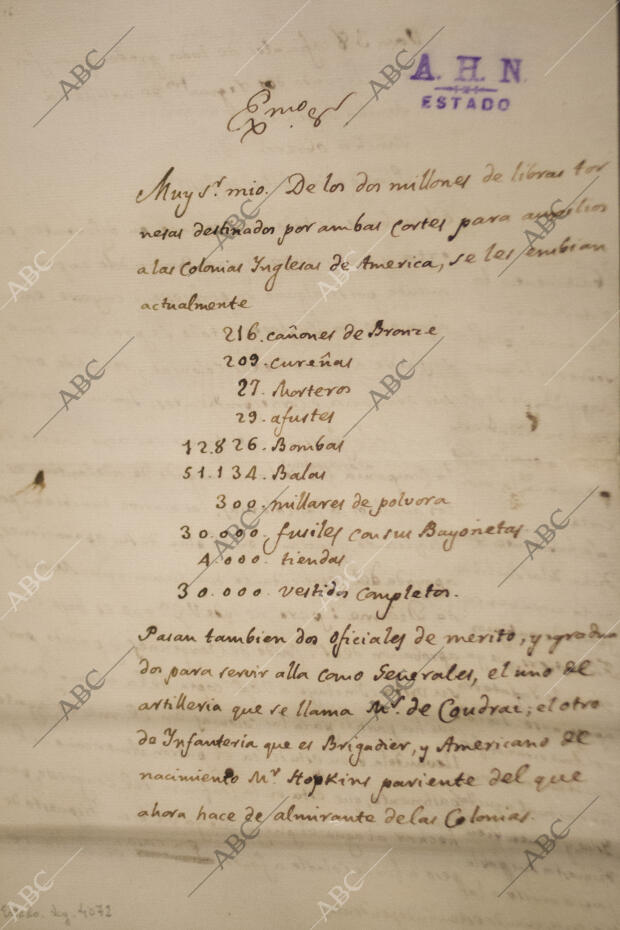 A. H. N.
ESTADO
Exmo. Sr
Muy Sr. mio. De los dos millones de libras tor
nesas destinados por ambas Cortes para auxilios
a las Colonias Inglesas de America, se les embian
actualmente
216. cañones de Bronze
209. cureñas
27. Morteros
29. afustes
12.826. Bombas
51.134. Balas
300. millares de polvora
30.000. fusiles con sus Bayonetas
4.000. tiendas
30.000. vestidos completos.
Pasan tambien dos oficiales de merito, y gradua
dos para servir alla como Generales, el uno de
artilleria que se llama Mr. de Coudrai; el otro
de Infanteria que es Brigadier, y Americano de
nacimiento Mr. Hopkins pariente del que
ahora hace de almirante de las Colonias.
Estado. leg. 4072
ABC